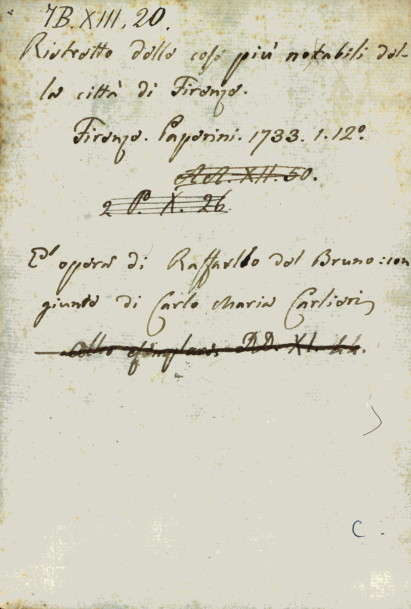 7B. XIII, 20.
Ristretto delle cose più notabili del-
la città di Firenze.
Firenze. Paperini. 1733. 1. 12º
AA. XII. 50.
2 P. X. 26
E' opera di Raffaello del Bruno: con
giunte di Carlo Maria Carlieri
DD. XI. 44.
C.